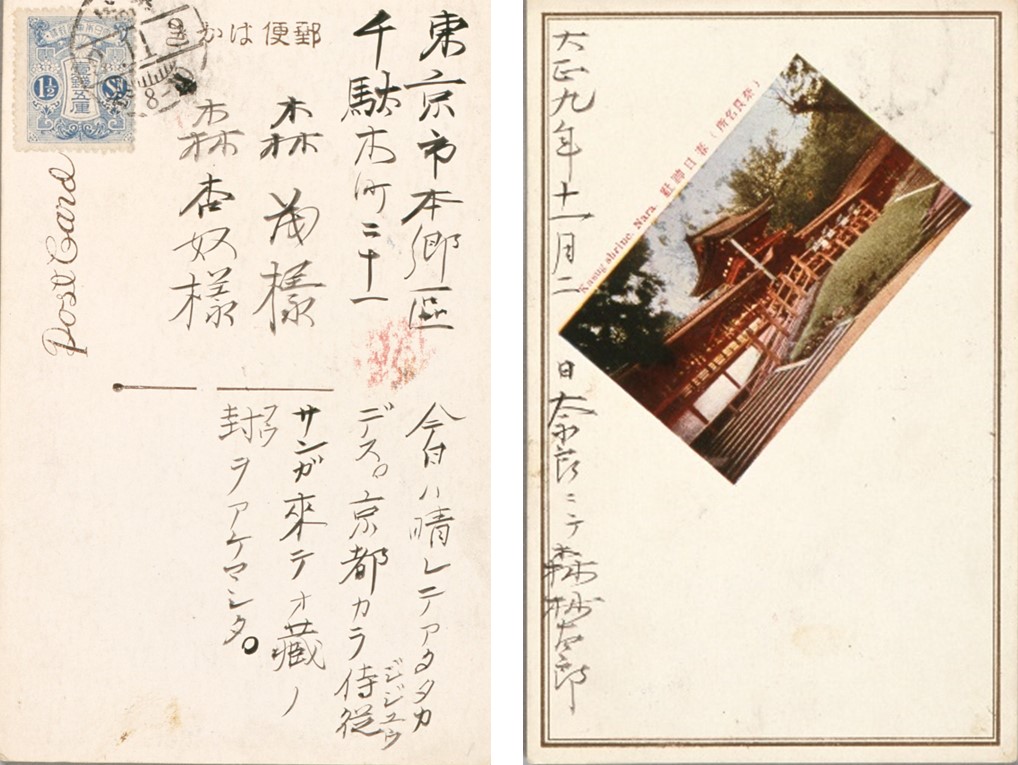 郵便はかき
1½
Sn.
壹錢五厘
東京市本郷區
千駄木町二十一
森茂樣
森杏奴樣
Post Card
今日ハ晴レテアタタカ
デス。京都カラ侍從
ジジユウ
サンガ來テオ藏ノ
封ヲアケマシタ。
フウ
大正九年十一月二日奈良ニテ森林太郎
(奈良名所) 春日神社
Kasuga shrine, Nara.